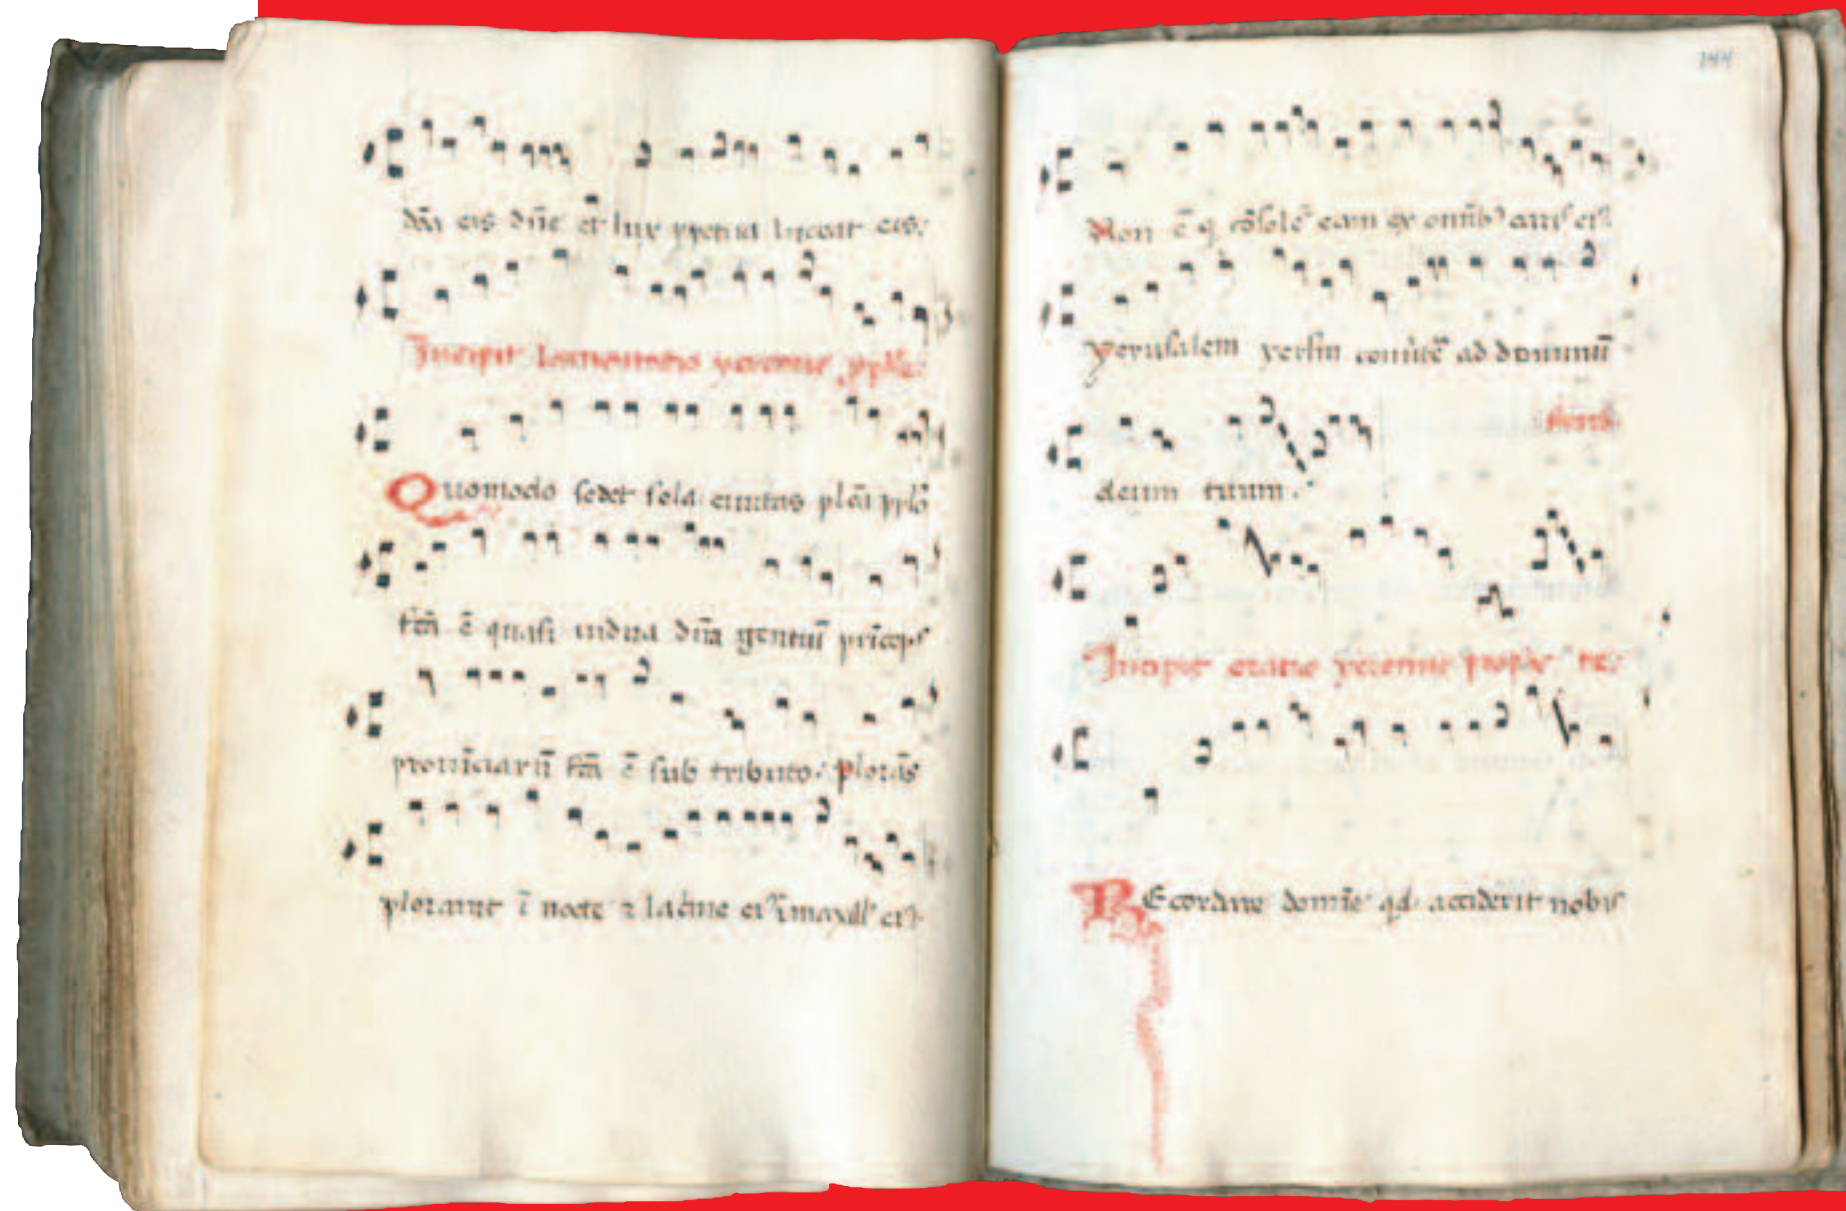 eis dñe et lux ppetua luceat eis:
Incipit lamentatio yeremie pphe:
Quomodo sedet sola ciuitas plēa pplō
fcā ē quasi uidua dña gentiū prīceps
prouīciarū fcā ē sub tributo. Plorās
plorauit ī nocte ⁊ lacͥme ei ī maxill ei
Non ē q cōsolet eam ex omīb caris ei
Yerusalem yerlm conuͥtē ad dominū
deum tuum.
Incipit oratio yeremie prophe
REcordare domīe qd acciderit nobis